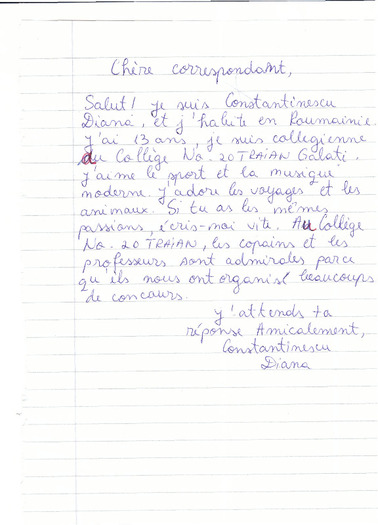 Chère correspondant,
Salut! je suis Constantinescu
Diana, et j'habite en Roumainie.
J'ai 13 ans, je suis collegienne
du Collège No. 20 TRAIAN Galati.
J'aime le sport et la musique
moderne. J'adore les voyages et les
animaux. Si tu as les mêmes
passions, écris-moi vite. Au Collège
No. 20 TRAIAN, les copains et les
professeurs sont admirales parce
qu'ils nous ont organisé beaucoups
de concours.
J'attends ta
réponse Amicalement,
Constantinescu
Diana